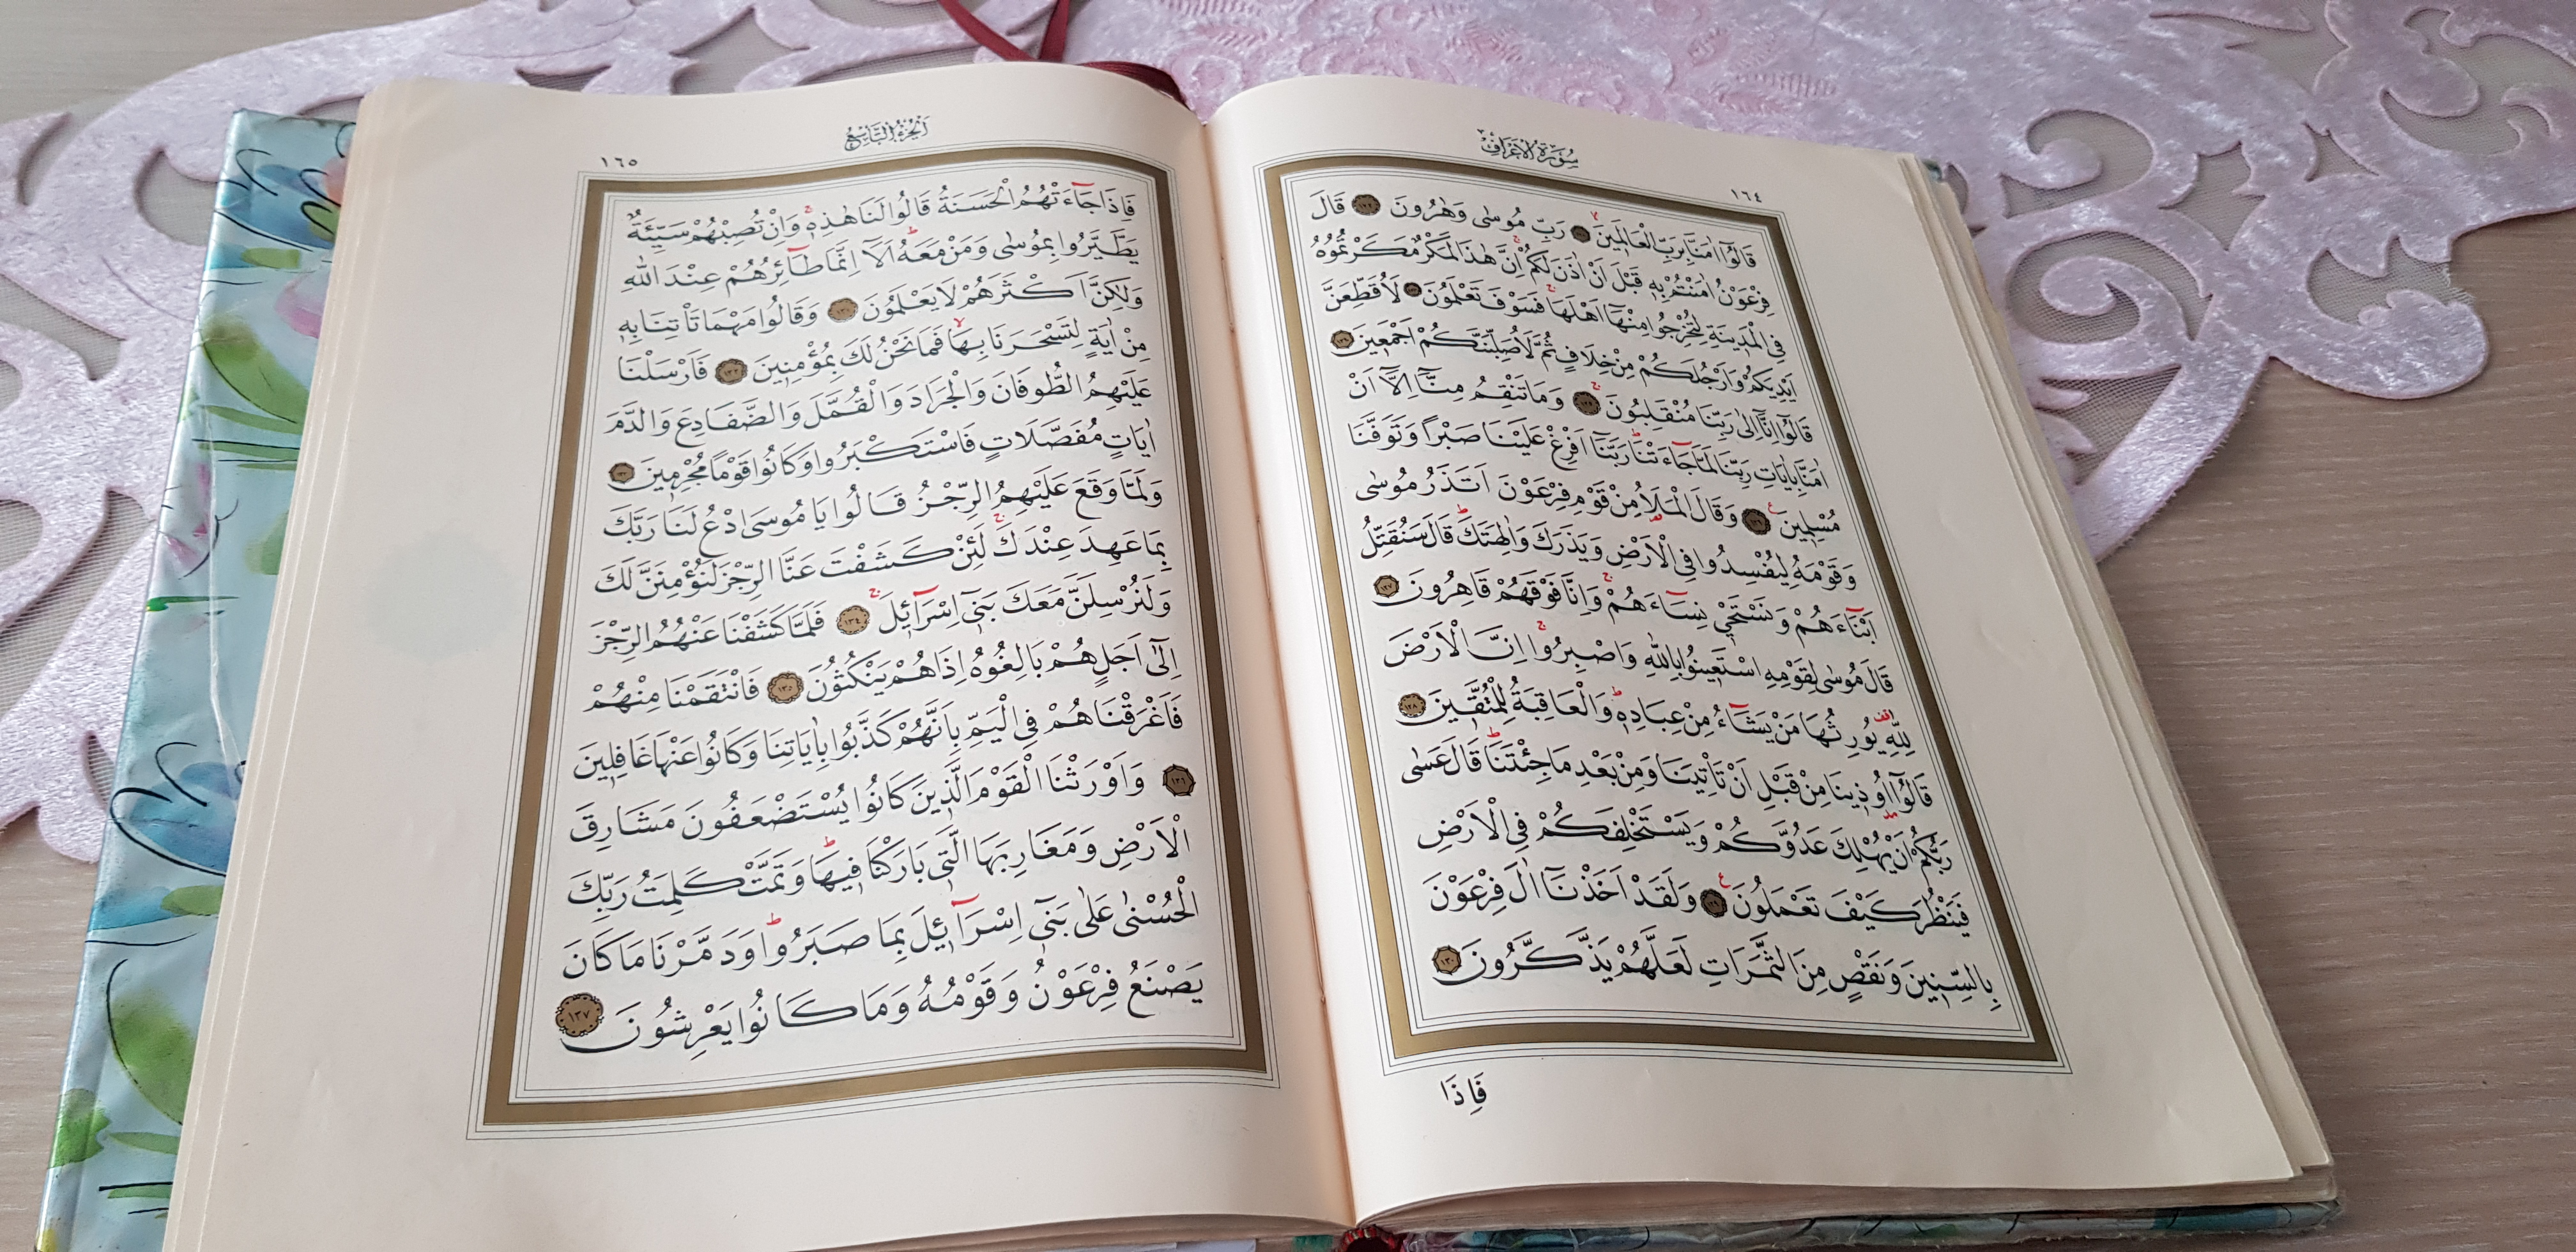 سُورَةُ الْاَعْرَافِ
١٦٤
قَالُٓوا اٰمَنَّا بِرَبِّ الْعَالَمٖينَۙ ﴿١٢١﴾ رَبِّ مُوسٰى وَهٰرُونَ ﴿١٢٢﴾ قَالَ
فِرْعَوْنُ اٰمَنْتُمْ بِهٖ قَبْلَ اَنْ اٰذَنَ لَكُمْۚ اِنَّ هٰذَا لَمَكْرٌ مَكَرْتُمُوهُ
فِي الْمَدٖينَةِ لِتُخْرِجُوا مِنْهَٓا اَهْلَهَاۚ فَسَوْفَ تَعْلَمُونَ ﴿١٢٣﴾ لَاُقَطِّعَنَّ
اَيْدِيَكُمْ وَاَرْجُلَكُمْ مِنْ خِلَافٍ ثُمَّ لَاُصَلِّبَنَّكُمْ اَجْمَعٖينَ ﴿١٢٤﴾
قَالُٓوا اِنَّٓا اِلٰى رَبِّنَا مُنْقَلِبُونَۚ ﴿١٢٥﴾ وَمَا تَنْقِمُ مِنَّٓا اِلَّٓا اَنْ
اٰمَنَّا بِاٰيَاتِ رَبِّنَا لَمَّا جَٓاءَتْنَاۜ رَبَّنَٓا اَفْرِغْ عَلَيْنَا صَبْرًا وَتَوَفَّنَا
مُسْلِمٖينَࣖ ﴿١٢٦﴾ وَقَالَ الْمَلَاُ مِنْ قَوْمِ فِرْعَوْنَ اَتَذَرُ مُوسٰى
وَقَوْمَهُ لِيُفْسِدُوا فِي الْاَرْضِ وَيَذَرَكَ وَاٰلِهَتَكَۜ قَالَ سَنُقَتِّلُ
اَبْنَٓاءَهُمْ وَنَسْتَحْيٖ نِسَٓاءَهُمْۚ وَاِنَّا فَوْقَهُمْ قَاهِرُونَ ﴿١٢٧﴾
قَالَ مُوسٰى لِقَوْمِهِ اسْتَعٖينُوا بِاللّٰهِ وَاصْبِرُواۚ اِنَّ الْاَرْضَ
لِلّٰهِ يُورِثُهَا مَنْ يَشَٓاءُ مِنْ عِبَادِهٖۜ وَالْعَاقِبَةُ لِلْمُتَّقٖينَ ﴿١٢٨﴾
قَالُٓوا اُوذٖينَا مِنْ قَبْلِ اَنْ تَاْتِيَنَا وَمِنْ بَعْدِ مَا جِئْتَنَاۜ قَالَ عَسٰى
رَبُّكُمْ اَنْ يُهْلِكَ عَدُوَّكُمْ وَيَسْتَخْلِفَكُمْ فِي الْاَرْضِ
فَيَنْظُرَ كَيْفَ تَعْمَلُونَࣖ ﴿١٢٩﴾ وَلَقَدْ اَخَذْنَٓا اٰلَ فِرْعَوْنَ
بِالسِّنٖينَ وَنَقْصٍ مِنَ الثَّمَرَاتِ لَعَلَّهُمْ يَذَّكَّرُونَ ﴿١٣٠﴾
فَاِذَا
اَلْجُزْءُ التَّاسِعُ
١٦٥
فَاِذَا جَٓاءَتْهُمُ الْحَسَنَةُ قَالُوا لَنَا هٰذِهٖۚ وَاِنْ تُصِبْهُمْ سَيِّئَةٌ
يَطَّيَّرُوا بِمُوسٰى وَمَنْ مَعَهُۜ اَلَٓا اِنَّمَا طَٓائِرُهُمْ عِنْدَ اللّٰهِ
وَلٰكِنَّ اَكْثَرَهُمْ لَا يَعْلَمُونَ ﴿١٣١﴾ وَقَالُوا مَهْمَا تَاْتِنَا بِهٖ
مِنْ اٰيَةٍ لِتَسْحَرَنَا بِهَاۙ فَمَا نَحْنُ لَكَ بِمُؤْمِنٖينَ ﴿١٣٢﴾ فَاَرْسَلْنَا
عَلَيْهِمُ الطُّوفَانَ وَالْجَرَادَ وَالْقُمَّلَ وَالضَّفَادِعَ وَالدَّمَ
اٰيَاتٍ مُفَصَّلَاتٍ فَاسْتَكْبَرُوا وَكَانُوا قَوْمًا مُجْرِمٖينَ ﴿١٣٣﴾
وَلَمَّا وَقَعَ عَلَيْهِمُ الرِّجْزُ قَالُوا يَا مُوسَى ادْعُ لَنَا رَبَّكَ
بِمَا عَهِدَ عِنْدَكَۚ لَئِنْ كَشَفْتَ عَنَّا الرِّجْزَ لَنُؤْمِنَنَّ لَكَ
وَلَنُرْسِلَنَّ مَعَكَ بَنٖٓي اِسْرَٓائٖلَۚ ﴿١٣٤﴾ فَلَمَّا كَشَفْنَا عَنْهُمُ الرِّجْزَ
اِلٰٓى اَجَلٍ هُمْ بَالِغُوهُ اِذَا هُمْ يَنْكُثُونَ ﴿١٣٥﴾ فَانْتَقَمْنَا مِنْهُمْ
فَاَغْرَقْنَاهُمْ فِي الْيَمِّ بِاَنَّهُمْ كَذَّبُوا بِاٰيَاتِنَا وَكَانُوا عَنْهَا غَافِلٖينَ
﴿١٣٦﴾ وَاَوْرَثْنَا الْقَوْمَ الَّذٖينَ كَانُوا يُسْتَضْعَفُونَ مَشَارِقَ
الْاَرْضِ وَمَغَارِبَهَا الَّتٖي بَارَكْنَا فٖيهَاۜ وَتَمَّتْ كَلِمَتُ رَبِّكَ
الْحُسْنٰى عَلٰى بَنٖٓي اِسْرَٓائٖلَ بِمَا صَبَرُواۜ وَدَمَّرْنَا مَا كَانَ
يَصْنَعُ فِرْعَوْنُ وَقَوْمُهُ وَمَا كَانُوا يَعْرِشُونَ ﴿١٣٧﴾